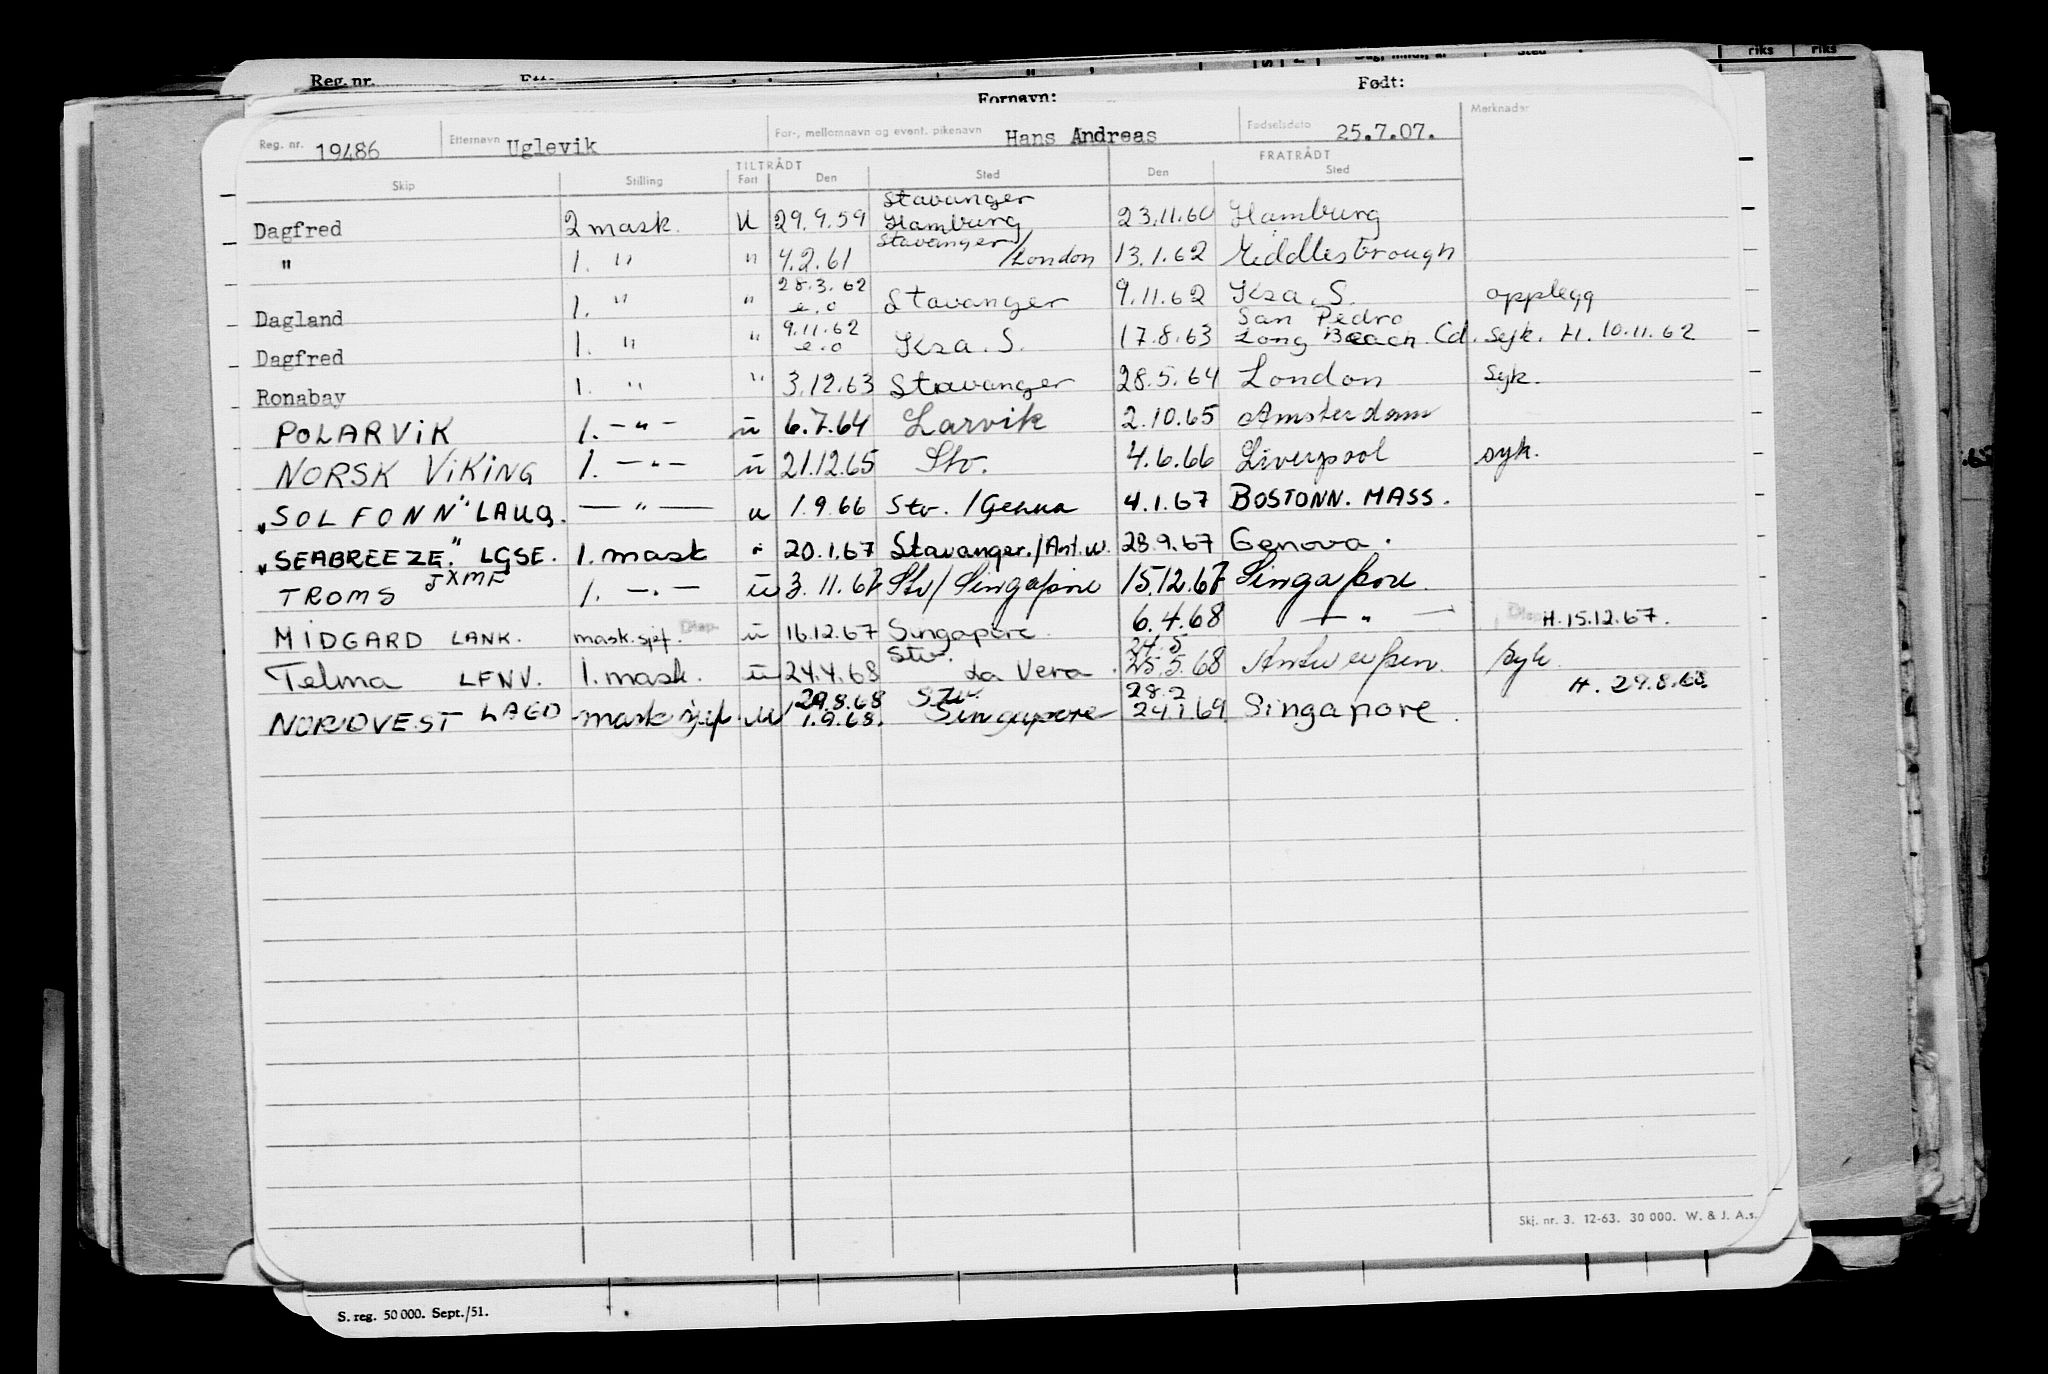 riks riks
Reg. nr.
Fornavn: Født:
Reg. nr. 19486 Etternavn Uglevik For-, mellomnavn og event. pikenavn Hans Andreas Fødselsdato 25.7.07. Merknader
TILTRÅDT FRATRÅDT
Skip Stilling Fart Den Sted Den Sted
Stavanger
Dagfred 2 mask. U 29.9.59 Hamburg 23.11.60 Hamburg
" 1. " " 4.2.61 Stavanger/London 13.1.62 Middlesbrough
28.3.62
Dagland 1. " " e.o Stavanger 9.11.62 Kra. S. opplegg
9.11.62 San Pedro
Dagfred 1. " " e.o Kra. S. 17.8.63 Long Beach Syk. H. 10.11.62
Ronabay 1. " " 3.12.63 Stavanger 28.5.64 London Syk.
POLARVIK 1. - " - u 6.7.64 Larvik 2.10.65 Amsterdam
NORSK VIKING 1. - " - u 21.12.65 Stv. 4.6.66 Liverpool syk.
"SOLFONN" LAUQ. - " - u 1.9.66 Stv. /Genua 4.1.67 BOSTONN. MASS.
"SEABREEZE." LGSE. 1. mask " 20.1.67 Stavanger./Ant.w. 23.9.67 Genova.
TROMS JXMF 1. - " - u 3.11.67 Stv/Singapore 15.12.67 Singapore
MIDGARD LANK. mask.sjef. Disp. u 16.12.67 Singapore 6.4.68 - " - Disp H. 15.12.67.
Stv. 24.5
Telma LFNV. 1. mask. u 24.4.68 La Vera 25.5.68 Antwerpen. Syk
29.8.68 Stv. 28.2 H. 29.8.68.
NORDVEST LAED mask sjef. U 1.9.68. Singapore 24.1.69 Singapore.
Skj. nr. 3. 12-63. 30 000. W. & J. A.s.
S. reg. 50 000. Sept./51.